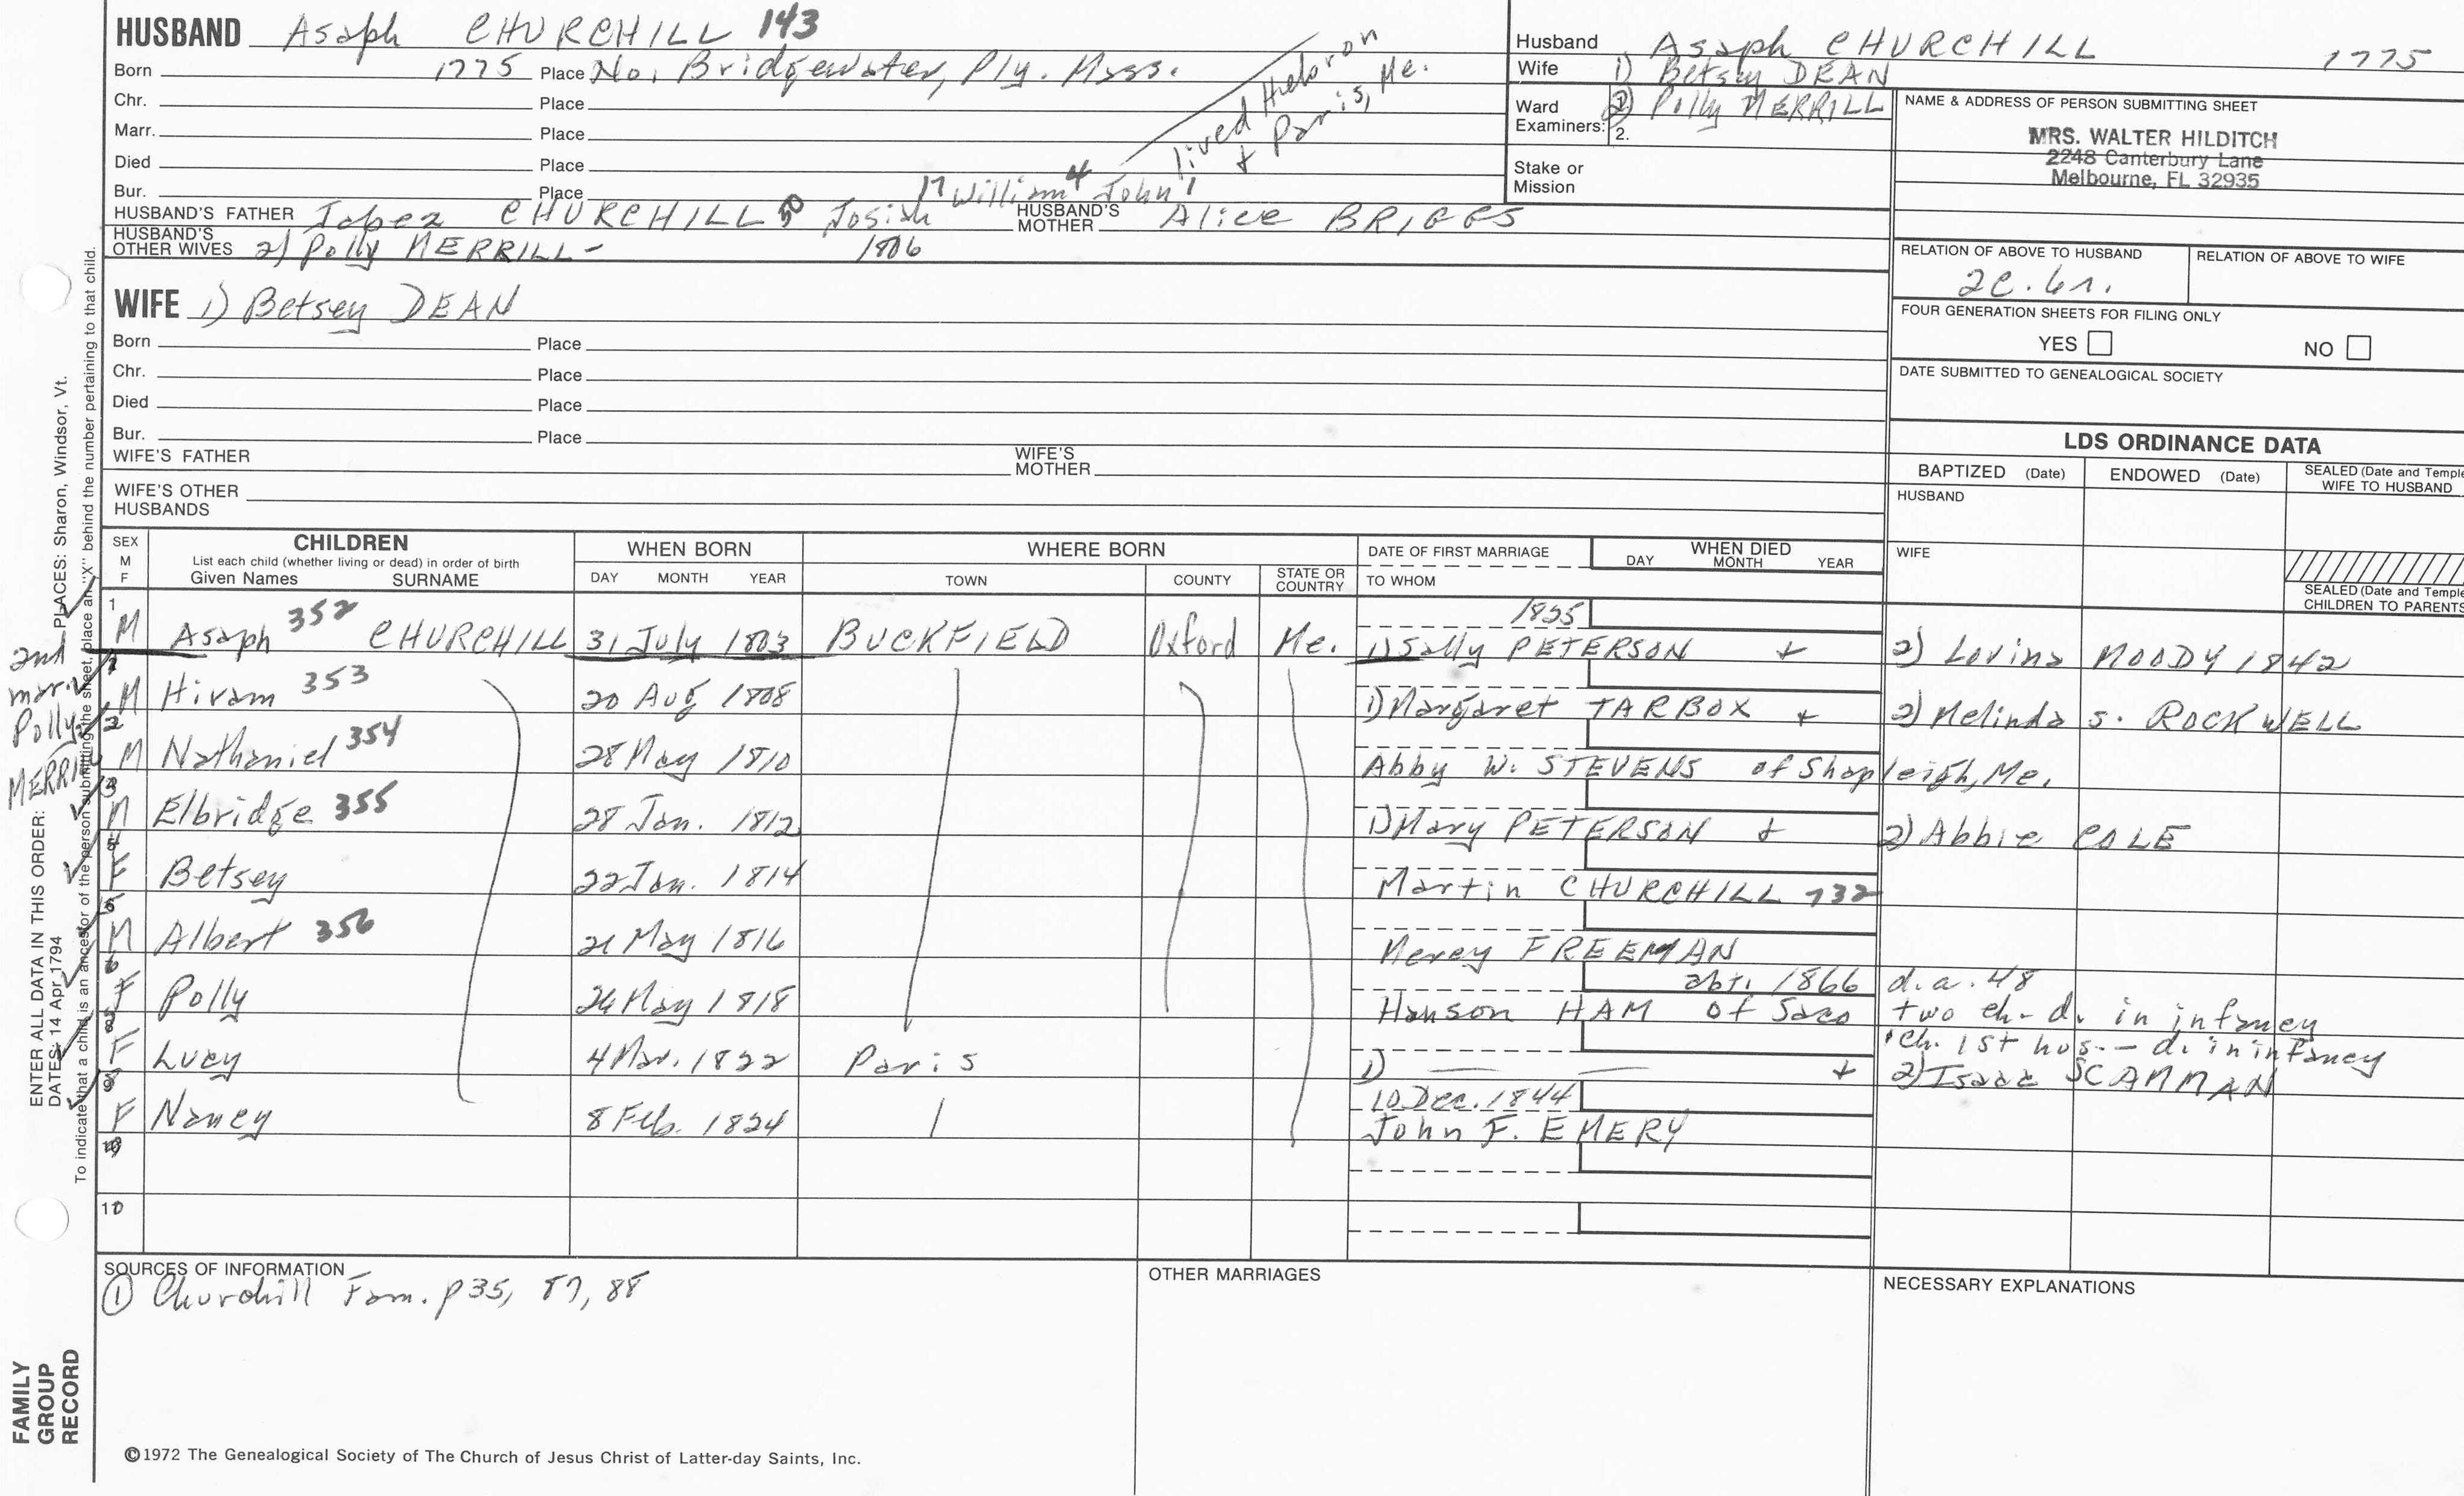 HUSBAND Asaph CHURCHILL 143
Born 1775 Place No. Bridgewater, Ply. Mass.
Chr. Place
Marr. Place
Died Place
Bur. Place
lived Hebron
& Paris, Me.
17 William 4 John 1
HUSBAND'S FATHER Jabez CHURCHILL 50 Josiah HUSBAND'S MOTHER Alice BRIGGS
HUSBAND'S OTHER WIVES 2) Polly MERRILL - 1806
WIFE 1) Betsey DEAN
Born Place
Chr. Place
Died Place
Bur. Place
WIFE'S FATHER WIFE'S MOTHER
WIFE'S OTHER HUSBANDS
Husband Asaph CHURCHILL 1775
Wife 1) Betsey DEAN
Ward Examiners: 2) Polly MERRILL
2.
Stake or Mission
NAME & ADDRESS OF PERSON SUBMITTING SHEET
MRS. WALTER HILDITCH
2248 Canterbury Lane
Melbourne, FL 32935
RELATION OF ABOVE TO HUSBAND RELATION OF ABOVE TO WIFE
2c. 6r.
FOUR GENERATION SHEETS FOR FILING ONLY
YES NO
DATE SUBMITTED TO GENEALOGICAL SOCIETY
LDS ORDINANCE DATA
BAPTIZED (Date) ENDOWED (Date) SEALED (Date and Temple
WIFE TO HUSBAND
HUSBAND
WIFE
SEALED (Date and Temple
CHILDREN TO PARENTS
SEX M F CHILDREN WHEN BORN WHERE BORN DATE OF FIRST MARRIAGE WHEN DIED
List each child (whether living or dead) in order of birth
Given Names SURNAME DAY MONTH YEAR TOWN COUNTY STATE OR COUNTRY TO WHOM DAY MONTH YEAR
1825
1 M Asaph 352 CHURCHILL 31 July 1803 BUCKFIELD Oxford Me. 1) Sally PETERSON + 2) Lovina MOODY 1842
M Hiram 353 20 Aug 1808 1) Margaret TARBOX + 2) Melinda S. ROCKWELL
M Nathaniel 354 28 May 1810 Abby W. STEVENS of Shapleigh, Me.
M Elbridge 355 28 Jan. 1812 1) Mary PETERSON + 2) Abbie COLE
F Betsey 22 Jan. 1814 Martin CHURCHILL 732
M Albert 356 21 May 1816 Mercy FREEMAN
abt. 1866 d.a. 48
F Polly 26 May 1818 Hanson HAM of Saco two ch- d. in infancy
ch. 1st hus. - d. in infancy
F Lucy 4 Mar. 1822 Paris 1) — — + 2) Isaac SCAMMAN
10 Dec. 1844
F Nancy 8 Feb. 1824 John F. EMERY
SOURCES OF INFORMATION
① Churchill Fam. p 35, 87, 88
OTHER MARRIAGES
NECESSARY EXPLANATIONS
©1972 The Genealogical Society of The Church of Jesus Christ of Latter-day Saints, Inc.
2nd
marr.
Polly
MERRILL
ENTER ALL DATA IN THIS ORDER:
DATES: 14 Apr 1794 PLACES: Sharon, Windsor, Vt.
To indicate that a child is an ancestor of the person submitting the sheet, place an "X" behind the number pertaining to that child.
FAMILY
GROUP
RECORD